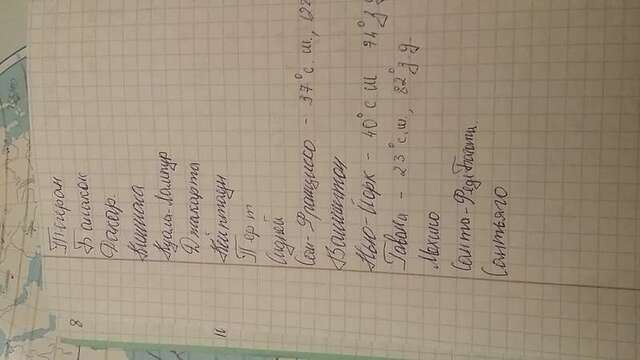 8
Тегеран
Бангкок
Дакар.
Киншаса
Куала-Лампур
Джакарта
10
Кейптаун
Перт
Сидней
Сан-Франциссо - 37° с. ш., 12
Вашингтон
Нью-Йорк - 40° с ш 74° з д
Гавана - 23° с. ш., 82° з. д.
Мехико
Санта-Феде Богота.
Сантьяго